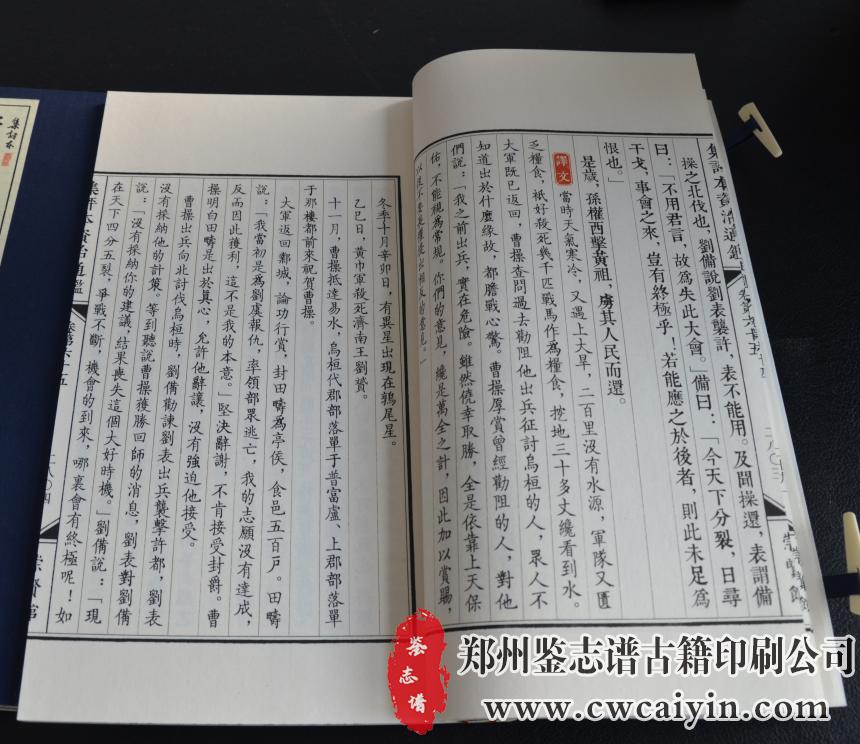 集評本資治通鑑
操之北伐也，劉備說劉表襲許，表不能用。及聞操還，表謂備
曰：「不用君言，故爲失此大會。」備曰：「今天下分裂，日尋
干戈，事會之來，豈有終極乎！若能應之於後者，則此未足爲
恨也。」
是歲，孫權西擊黃祖，虜其人民而還。
譯文 當時天氣寒冷，又遇上大旱，二百里沒有水源，軍隊又匱
乏糧食，衹好殺死幾千匹戰馬作爲糧食，挖地三十多丈纔看到水。
大軍既已返回，曹操查問過去勸阻他出兵征討烏桓的人，眾人不
知道出於什麼緣故，都膽戰心驚。曹操厚賞曾經勸阻的人，對他
們說：「我之前出兵，實在危險，雖然僥幸取勝，全是依靠上天保
佑，不能視爲常規。你們的意見，纔是萬全之計，因此加以賞賜，
冬季十月辛卯日，有異星出現在鶉尾星。
乙巳日，黃巾軍殺死濟南王劉贇。
十一月，曹操抵達易水，烏桓代郡部落單于普富盧、上郡部落單
于那樓都前來祝賀曹操。
大軍返回鄴城，論功行賞，封田疇爲亭侯，食邑五百戶。田疇
說：「我當初是爲劉虞報仇，率領部眾逃亡，我的志願沒有達成，
反而因此獲利，這不是我的本意。」堅決辭謝，不肯接受封爵。曹
操明白田疇是出於真心，允許他辭讓，沒有強迫他接受。
曹操出兵向北討伐烏桓時，劉備勸諫劉表出兵襲擊許都，劉表
沒有採納他的計策。等到聽說曹操獲勝回師的消息，劉表對劉備
說：「沒有採納你的建議，結果喪失這個大好時機。」劉備說：「現
在天下四分五裂，爭戰不斷，機會的到來，哪裏會有終極呢！如
集評本資治通鑑 卷第六十五 二八〇四 崇賢館
集評本
鉴志谱
郑州鉴志谱古籍印刷公司
www.cwcaiyin.com